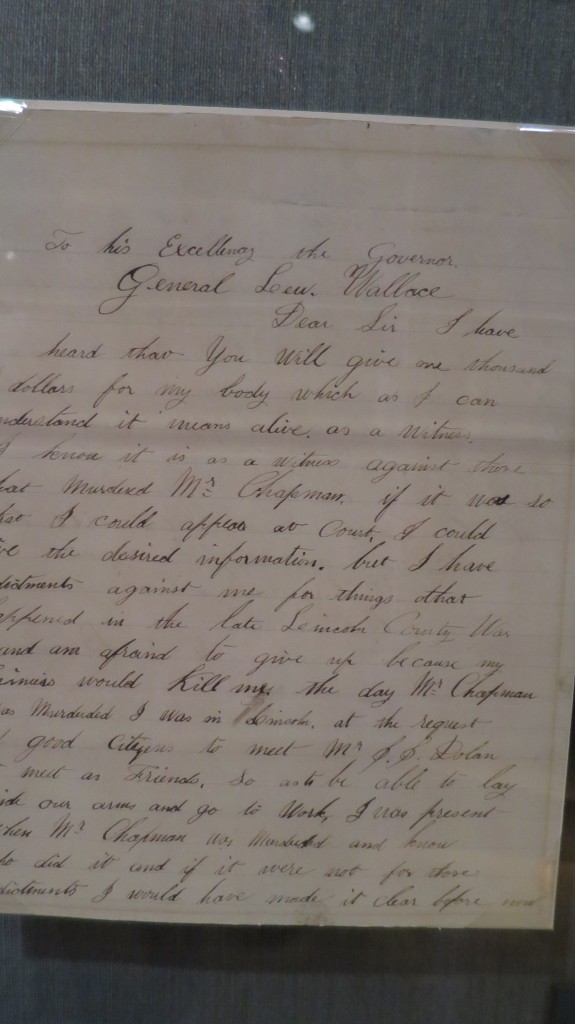 To his Excellency the Governor.
General Lew. Wallace
Dear Sir I have
heard that You will give one thousand
dollars for my body which as I can
nderstand it means alive. as a witness.
I know it is as a witness against those
hat Murdered Mr Chapman. if it was so
hat I could appear at Court, I could
ive the desired information. but I have
dictments against me for things that
appened in the late Lincoln County War
and am afraid to give up because my
would Kill me, the day Mr Chapman
as Murderded I was in Lincoln, at the request
good Citizens to meet Mr J. J. Dolan
meet as Friends, so as to be able to lay
ide our arms and go to Work, I was present
hen Mr Chapman was Murderded and know
ho did it and if it were not for those
dictments I would have made it clear before now